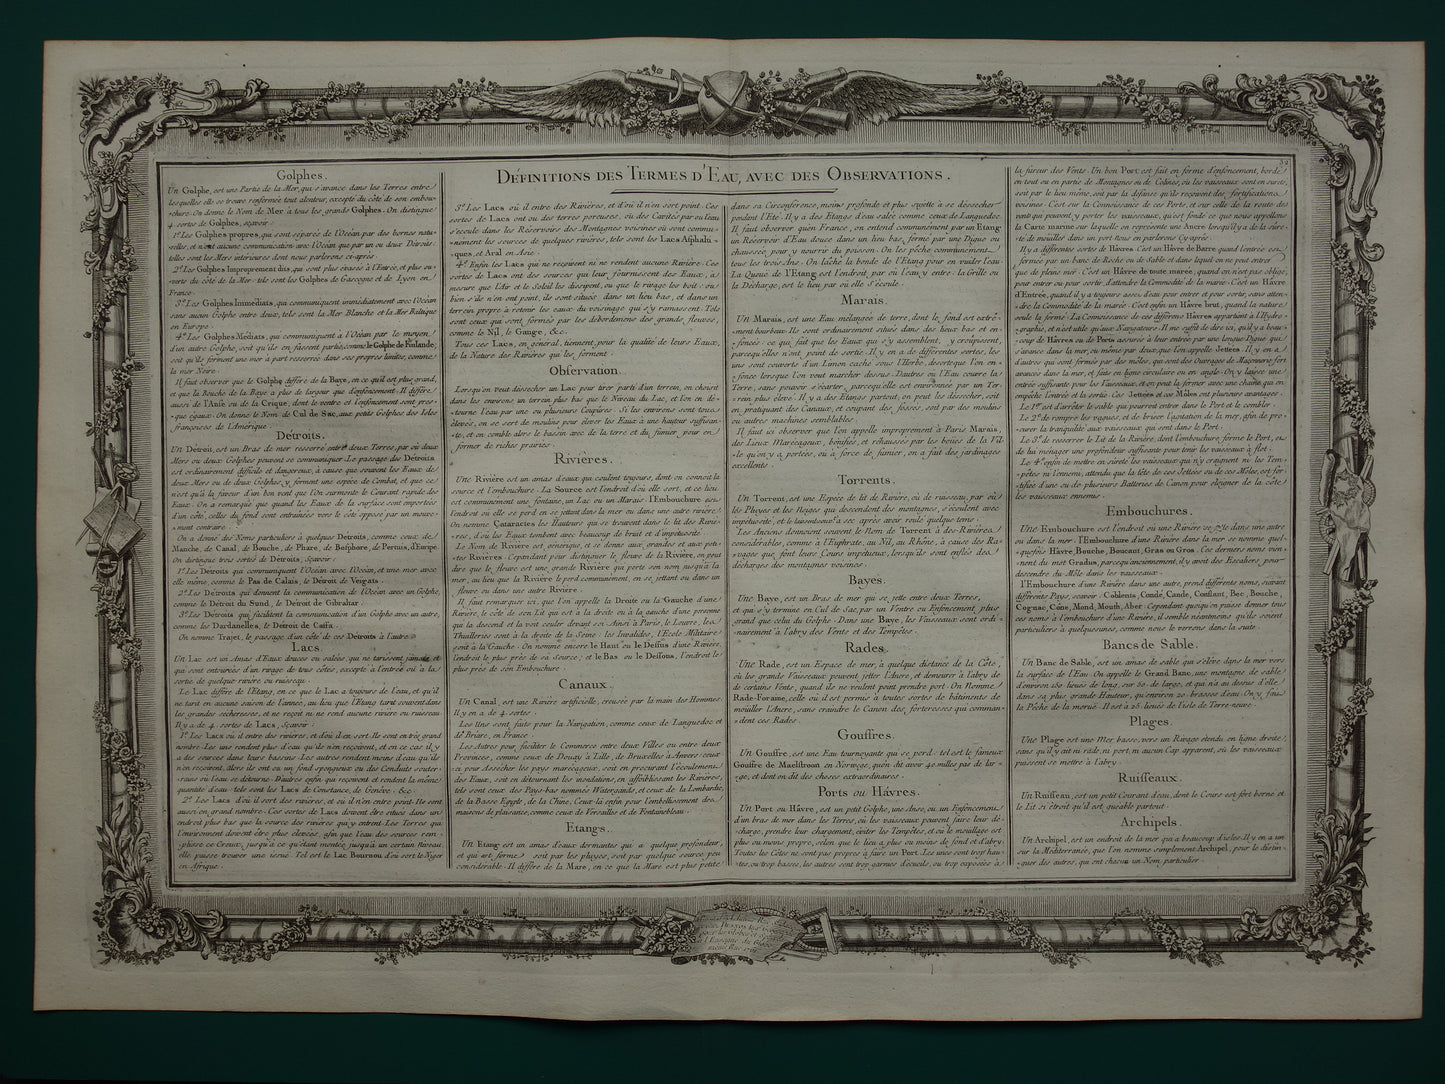 32
DÉFINITIONS DES TERMES D'EAU, AVEC DES OBSERVATIONS.
Golphes.
Un Golphe, est une Partie de la Mer, qui s'avance dans les Terres entre
lesquelles elle se trouve renfermée tout alentour, excepté du côté de son embou-
-chure. On donne le Nom de Mer à tous les grands Golphes. On distingue
4. sortes de Golphes, sçavoir:
1.º Les Golphes propres, qui sont séparés de l'Océan par des bornes natu-
-relles, et n'ont aucune communication avec l'Océan que par un ou deux Détroits:
telles sont les Mers intérieures dont nous parlerons ci-après.
2.º Les Golphes Improprement dits, qui sont plus évasés à l'Entrée, et plus ou-
-verts du côté de la Mer: tels sont les Golphes de Gascogne et de Lyon en
France.
3.º Les Golphes Immédiats, qui communiquent immédiatement avec l'Océan
sans aucun Golphe entre deux, tels sont la Mer Blanche et la Mer Baltique
en Europe.
4.º Les Golphes Médiats, qui communiquent à l'Océan par le moyen
d'un autre Golphe, soit qu'ils en fassent partie, comme le Golphe de Finlande;
soit qu'ils forment une mer à part resserrée dans ses propres limites, comme
la mer Noire.
Il faut observer que le Golphe differe de la Baye, en ce qu'il est plus grand,
et que la Bouche de la Baye a plus de largeur que d'enfoncement. Il differe
aussi de l'Anse ou de la Crique, dont le ventre et l'enfoncement sont pres-
-que égaux. On donne le Nom de Cul de Sac, aux petits Golphes des Isles
françoises de l'Amérique.
Détroits.
Un Détroit, est un Bras de mer resserré entre deux Terres, par où deux
Mers ou deux Golphes peuvent se communiquer. Le passage des Détroits
est ordinairement difficile et dangereux, à cause que souvent les Eaux de
deux Mers ou de deux Golphes y forment une espèce de Combat, et que ce
n'est qu'à la faveur d'un bon vent que l'On surmonte le Courant rapide des
Eaux. On a remarqué que quand les Eaux de la surface sont emportées
d'un côté, celles du fond sont entraînées vers le côté opposé par un mouve-
-ment contraire.
On a donné des Noms particuliers à quelques Détroits, comme ceux de
Manche, de Canal, de Bouche, de Phare, de Bosphore, de Pertuis, d'Euripe.
On distingue trois sortes de Détroits; Sçavoir:
1.º Les Détroits qui communiquent l'Océan avec l'Océan, et une mer avec
elle même, comme le Pas de Calais, le Détroit de Veigats.
2.º Les Détroits qui donnent la communication de l'Océan avec un Golphe,
comme le Détroit du Sund, le Détroit de Gibraltar.
3.º Les Détroits qui facilitent la communication d'un Golphe avec un autre,
comme les Dardanelles, le Détroit de Caffa.
On nomme Trajet, le passage d'un côté de ces Détroits à l'autre.
Lacs.
Un Lac est un Amas d'Eaux douces ou salées, qui ne tarissent jamais et
qui sont entourées d'un rivage de tous côtés, excepté à l'entrée où à la
sortie de quelque rivière ou ruisseau.
Le Lac differe de l'Etang, en ce que le Lac a toujours de l'eau, et qu'il
ne tarit en aucune saison de l'année, au lieu que l'Etang tarit souvent dans
les grandes sécheresses, et ne reçoit ni ne rend aucune rivière ou ruisseau.
Il y a 4. sortes de Lacs, Sçavoir:
1.º Les Lacs où il entre des rivières, et d'où il en sort. Ils sont en très grand
nombre. Les uns rendent plus d'eau qu'ils n'en reçoivent, et en ce cas il y
a des sources dans leurs bassins. Les autres rendent moins d'eau qu'ils
n'en reçoivent, alors ils ont ou un fond spongieux ou des Conduits souter-
-rains où l'eau se détourne. D'autres enfin qui reçoivent et rendent la même
quantité d'eau: tels sont les Lacs de Constance, de Genève, &c.
2.º Les Lacs d'où il sort des rivières, et où il n'en entre point. Ils sont
aussi en grand nombre. Ces sortes de Lacs doivent être situés dans un
endroit plus bas que la source des rivières qui y entrent. Les Terres qui
l'environnent doivent être plus élevées, afin que l'eau des sources rem-
plisse ce Creux, jusqu'à ce qu'étant montée jusqu'à un certain Niveau
elle puisse trouver une issue. Tel est le Lac Bournou d'où sort le Niger
en Afrique.
3.º Les Lacs où il entre des Rivières, et d'où il n'en sort point. Ces
sortes de Lacs ont ou des terres poreuses, où des Cavités par où l'eau
s'écoule dans les Réservoirs des Montagnes voisines où sont commu-
-nément les sources de quelques rivières, tels sont les Lacs Asphalti-
-ques, et Aral en Asie.
4.º Enfin les Lacs qui ne reçoivent ni ne rendent aucune Rivière. Ces
sortes de Lacs ont des sources qui leur fournissent des Eaux, à
mesure que l'Air et le Soleil les dissipent, ou que le rivage les boit: ou
bien s'ils n'en ont point, ils sont situés dans un lieu bas, et dans un
terrein propre à retenir les eaux du voisinage qui s'y ramassent. Tels
sont ceux qui sont formés par les débordemens des grands fleuves,
comme le Nil, le Gange, &c.
Tous ces Lacs, en général, tiennent, pour la qualité de leurs Eaux,
de la Nature des Rivières qui les forment.
Observation.
Lorsqu'on veut dessécher un Lac pour tirer parti d'un terrein, on choisit
dans les environs, un terrein plus bas que le Niveau du Lac, et l'on en dé-
-tourne l'eau par une ou plusieurs Coupures. Si les environs sont tous
élevés, on se sert de moulins pour élever les Eaux à une hauteur suffisan-
-te, et on comble alors le bassin avec de la terre et du fumier, pour en
former de riches prairies.
Rivières.
Une Rivière est un amas d'eaux qui coulent toujours, dont on connoit la
source et l'embouchure. La Source est l'endroit d'où elle sort, et ce lieu
est communément une fontaine, un Lac ou un Marais. l'Embouchure est
l'endroit où elle se perd en se jettant dans la mer ou dans une autre rivière.
On nomme Cataractes les Hauteurs qui se trouvent dans le lit des Riviè-
-res, d'où les Eaux tombent avec beaucoup de bruit et d'impétuosité.
Le Nom de Rivière est générique, et se donne aux grandes et aux peti-
-tes Rivières. Cependant pour distinguer le fleuve de la Rivière, on peut
dire que le fleuve est une grande Rivière qui porte son nom jusqu'à la
mer, au lieu que la Rivière le perd communément, en se jettant ou dans un
fleuve ou dans une autre Rivière.
Il faut remarquer ici, que l'on appelle la Droite ou la Gauche d'une
Rivière, le côté de son Lit qui est à la droite ou à la gauche d'une personne
qui la descend et la voit couler devant soi. Ainsi à Paris, le Louvre, les
Thuilleries sont à la droite de la Seine: les Invalides, l'Ecole Militaire
sont à la Gauche. On nomme encore le Haut ou le Dessus d'une Rivière,
l'endroit le plus près de sa Source; et le Bas ou le Dessous, l'endroit le
plus près de son Embouchure.
Canaux.
Un Canal, est une Rivière artificielle, creusée par la main des Hommes.
Il y en a de 4. sortes.
Les Uns sont faits pour la Navigation, comme ceux de Languedoc et
de Briare, en France.
Les Autres pour faciliter le Commerce entre deux Villes ou entre deux
Provinces, comme ceux de Douay à Lille, de Bruxelles à Anvers: ceux
ci pour Assécher les pays marécageux, soit en procurant l'écoulement
des Eaux, soit en détournant les inondations, en affoiblissant les Rivières,
tels sont ceux des Pays-bas nommés Watergands, et ceux de la Lombardie,
de la Basse Egypte, de la Chine. Ceux-là enfin pour l'embellissement des
maisons de plaisance, comme ceux de Versailles et de Fontainebleau.
Etangs.
Un Etang est un amas d'eaux dormantes qui a quelque profondeur,
et qui est formé soit par les pluyes, soit par quelque source peu
considérable. Il differe de la Mare, en ce que la Mare est plus petite
dans sa Circonférence, moins profonde et plus sujette à se dessécher
pendant l'Eté. Il y a des Etangs d'eau salée comme ceux de Languedoc.
Il faut observer qu'en France, on entend communément par un Etang
un Réservoir d'Eau douce dans un lieu bas, fermé par une Digue ou
chaussée, pour y nourrir du poisson. On les pêche communément
tous les trois Ans. On lâche la bonde de l'Etang pour en vuider l'eau.
La Queue de l'Etang est l'endroit par où l'eau y entre. la Grille ou
la Décharge, est le lieu par où elle S'écoule.
Marais.
Un Marais, est une Eau mélangée de terre, dont le fond est extré-
-ment bourbeux. Ils sont ordinairement situés dans des lieux bas et en-
-foncés: ce qui fait que les Eaux qui s'y assemblent, y croupissent,
parcequ'elles n'ont point de sortie. Il y en a de différentes sortes, les
uns sont couverts d'un Limon caché sous l'Herbe, desorteque l'on en-
-fonce lorsque l'on veut marcher dessus. D'autres où l'Eau couvre la
Terre, sans pouvoir s'écarter, parcequ'elle est environnée par un Ter-
-rein plus élevé. Il y a des Etangs partout, on peut les dessécher, soit
en pratiquant des Canaux, et coupant des fossés, soit par des moulins
ou autres machines semblables.
Il faut ici observer que l'on appelle improprement à Paris Marais,
des Lieux Marécageux, bonifiés, et réhaussés par les boües de la Vil-
-le qu'on y a portées, ou à force de fumier, on a fait des jardinages
excellents.
Torrents.
Un Torrent, est une Espèce de lit de Rivière, où de ruisseau, par où
les Pluyes et les Neiges qui descendent des montagnes, s'écoulent avec
impétuosité, et le laissent souvent à sec après avoir roulé quelque tems.
Les Anciens donnoient souvent le Nom de Torrent à des Rivières
considérables, comme à l'Euphrate, au Nil, au Rhône, à cause des Ra-
-vages que font leurs Cours impetueux, lorsqu'ils sont enflés des
décharges des montagnes voisines.
Bayes.
Une Baye, est un Bras de mer qui se jette entre deux Terres,
et qui s'y termine en Cul de Sac, par un Ventre ou Enfoncement plus
grand que celui du Golphe. Dans une Baye, les Vaisseaux sont ordi-
-nairement à l'abry des Vents et des Tempêtes.
Rades.
Une Rade, est un Espace de mer, à quelque distance de la Côte,
où les grands Vaisseaux peuvent jetter l'Ancre, et demeurer à l'abry de
de certains Vents, quand ils ne veulent point prendre port. On Nomme
Rade-Foraine, celle où il est permis à toutes sortes de bâtiments de
mouiller l'Ancre, sans craindre le Canon des forteresses qui comman-
-dent ces Rades.
Gouffres.
Un Gouffre, est une Eau tournoyante qui se perd: tel est le fameux
Gouffre de Maelstroon en Norwege, qu'on dit avoir 40 milles pas de lar-
-ge, et dont on dit des choses extraordinaires.
Ports ou Hâvres.
Un Port ou Hâvre, est un petit Golphe, une Anse, ou un Enfoncement
d'un bras de mer dans les Terres, où les vaisseaux peuvent faire leur dé-
-charge, prendre leur chargement, éviter les Tempêtes, et où le mouillage est
plus ou moins propre, selon que le lieu a plus ou moins de fond et d'abry.
Toutes les Côtes ne sont pas propres à faire un Port. Les unes sont trop hau-
-tes, ou trop basses, les autres sont trop garnies d'écueils, ou trop exposées à
la fureur des Vents. Un bon Port est fait en forme d'enfoncement, bordé
en tout ou en partie de Montagnes ou de Colines, où les vaisseaux sont en sureté,
soit par le lieu même, soit par la défense qu'ils reçoivent des fortifications
voisines. C'est sur la Connoissance de ces Ports, et sur celle de la route des
vents qui peuvent y porter les vaisseaux, qu'est fondé ce que nous appellons
la Carte marine sur laquelle on représente une Ancre lorsqu'il y a de la sûre-
-té de mouiller dans un port. Nous en parlerons Cy après.
Il y a différentes sortes de Hâvres. C'est un Hâvre de Barre quand l'entrée est
fermée par un banc de Roche ou de Sable et dans lequel on ne peut entrer
que de pleine mer. C'est un Hâvre de toute marée, quand on n'est pas obligé,
pour entrer ou pour sortir, d'attendre la Commodité de la marée. C'est un Hâvre
d'Entrée, quand il y a toujours assez d'eau pour entrer et pour sortir, sans atten-
-dre la Commodité de la marée. C'est enfin un Hâvre brut, quand la nature
seule l'a formé. La Connoissance de ces différens Hâvres appartient à l'Hydro-
-graphie, et n'est utile qu'aux Navigateurs. Il me suffit de dire ici, qu'il y a beau-
-coup de Hâvres ou de Ports assurés à leur entrée par une longue Digue qui
s'avance dans la mer, ou même par deux que l'on appelle Jettées. Il y en a
d'autres qui sont fermés par des môles, qui sont des Ouvrages de Maçonnerie fort
avancés dans la mer, et faits en ligne circulaire ou en angle. On y laisse une
entrée suffisante pour les Vaisseaux, et on peut la fermer avec une chaîne qui en
empêche l'entrée et la sortie. Ces Jettées et ces Môles ont plusieurs avantages.
Le 1.er est d'arrêter le sable qui pourroit entrer dans le Port et le combler.
Le 2.e de rompre les vagues, et de briser l'agitation de la mer, afin de pro-
-curer la tranquilité aux vaisseaux qui sont dans le Port.
Le 3.e de resserrer le Lit de la Rivière, dont l'embouchure forme le Port, et
de lui menager une profondeur suffisante pour tenir les vaisseaux à flot.
Le 4.e enfin de mettre en sûreté les vaisseaux qui n'y craignent ni les Tem-
-pêtes ni l'ennemi, attendu que la tête de ces Jettées ou de ces Môles, est for-
-tifiée d'une ou de plusieurs Batteries de Canon pour éloigner de la côte
les vaisseaux ennemis.
Embouchures.
Une Embouchure est l'endroit où une Rivière se jette dans une autre
ou dans la mer. l'Embouchure d'une Rivière dans la mer se nomme quel-
-quefois Hâvre, Bouche, Boucaut, Gras ou Gros. Ces derniers noms vien-
-nent du mot Gradus, parcequ'anciennement, il y avoit des Escaliers, pour
descendre du Môle dans les vaisseaux.
l'Embouchure d'une Rivière dans une autre, prend différents noms, suivant
différents Pays, sçavoir: Coblents, Condé, Cande, Conflant, Bec, Bouche,
Cognac, Cône, Mond, Mouth, Aber. Cependant quoiqu'on puisse donner tous
ces noms à l'embouchure d'une Rivière, il semble néantmoins qu'ils soient
particuliers à quelques unes, comme nous le verrons dans la suite.
Bancs de Sable.
Un Banc de Sable, est un amas de sable qui s'élève dans la mer vers
la surface de l'Eau. On appelle le Grand Banc, une montagne de sable
d'environ 150 lieuës de long, sur 50 de large, et qui n'a au dessus d'elle,
dans sa plus grande Hauteur, qu'environ 20. brasses d'eau. On y fait
la Pêche de la morue. Il est à 26. lieuës de l'isle de Terre-neuve.
Plages.
Une Plage est une Mer basse, vers un Rivage étendu en ligne droite,
sans qu'il y ait ni rade, ni port, ni aucun Cap apparent, où les vaisseaux
puissent se mettre à l'abry.
Ruisseaux.
Un Ruisseau, est un petit Courant d'eau, dont le Cours est fort borné et
le Lit si étroit qu'il est guéable partout.
Archipels.
Un Archipel, est un endroit de la mer qui a beaucoup d'isles. Il y en a un
sur la Méditerranée, que l'on nomme simplement Archipel, pour le distin-
-guer des autres, qui ont chacun un Nom particulier.